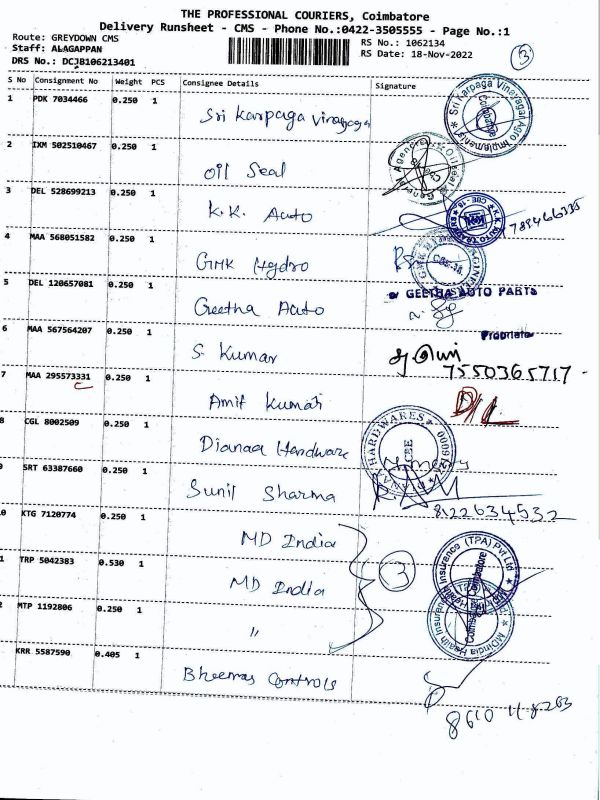 THE PROFESSIONAL COURIERS, Coimbatore
Delivery Runsheet - CMS - Phone No.:0422-3505555 - Page No.:1
Route: GREYDOWN CMS
RS No.: 1062134
Staff: ALAGAPPAN
RS Date: 18-Nov-2022
DRS No.: DCJB106213401
3
S No Consignment No Weight PCS Consignee Details Signature
1 PDK 7034466 0.250 1 Sri Karpaga Vinayaga
Sri Karpaga Vinayagaa Agro Implements
2 IXM 502510467 0.250 1 Oil Seal
3 DEL 528699213 0.250 1 K.K. Auto
4 MAA 568051582 0.250 1 GMK Hydro
5 DEL 120657081 0.250 1 Geetha Auto
GEETHA AUTO PARTS
Proprietor
6 MAA 567564207 0.250 1 S. Kumar
7550365717
7 MAA 295573331 0.250 1 Amit Kumar
8 CGL 8002509 0.250 1 Dianaa Hardware
HARDWARES
9 SRT 63387660 0.250 1 Sunil Sharma
8122634532
0 KTG 7120774 0.250 1 MD India
1 TRP 5042383 0.530 1 MD India
3
Health Insurance (TPA) Pvt Ltd
Coimbatore
2 MTP 1192806 0.250 1 "
MDIndia Health Insurance
KRR 5587590 0.405 1 Bheemas Controls